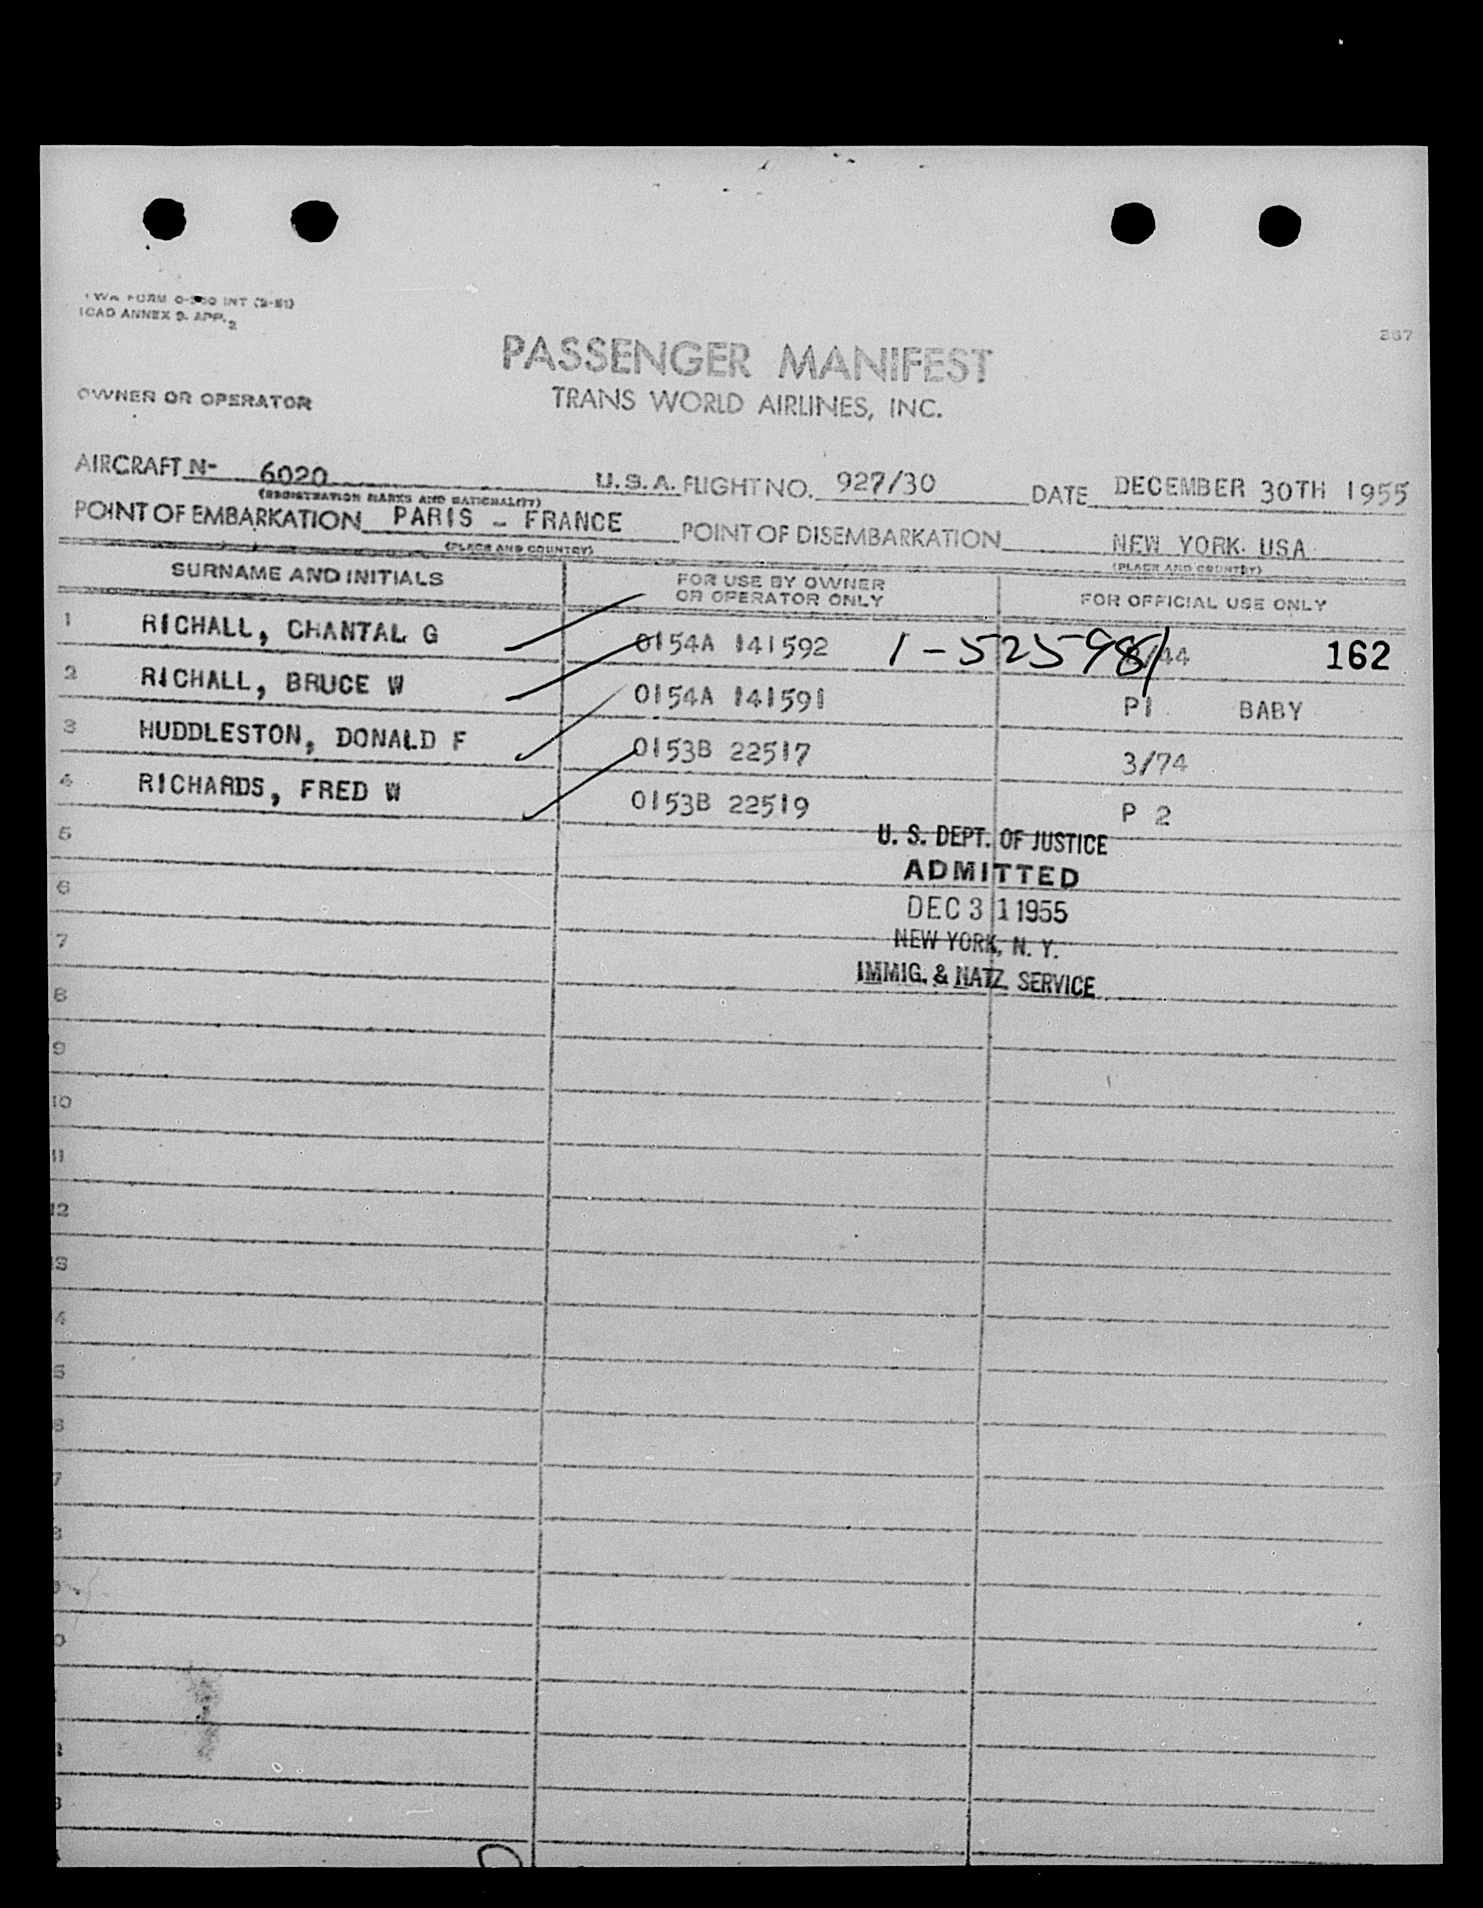 TWA FORM 0-300 INT (2-51)
ICAO ANNEX 9. APP. 2
267
PASSENGER MANIFEST
OWNER OR OPERATOR
TRANS WORLD AIRLINES, INC.
AIRCRAFT N- 6020 U.S.A. FLIGHT NO. 927/30 DATE DECEMBER 30TH 1955
(REGISTRATION MARKS AND NATIONALITY)
POINT OF EMBARKATION PARIS - FRANCE POINT OF DISEMBARKATION NEW YORK USA
(PLACE AND COUNTRY) (PLACE AND COUNTRY)
SURNAME AND INITIALS FOR USE BY OWNER OR OPERATOR ONLY FOR OFFICIAL USE ONLY
1 RICHALL, CHANTAL G 0154A 141592 1-525981 /44 162
2 RICHALL, BRUCE W 0154A 141591 P1 BABY
3 HUDDLESTON, DONALD F 0153B 22517 3/74
4 RICHARDS, FRED W 0153B 22519 P 2
5
U. S. DEPT. OF JUSTICE
6 ADMITTED
DEC 31 1955
7 NEW YORK, N. Y.
IMMIG. & NATZ. SERVICE
8
9
10
11
12
13
4
5
6
7
8
9
0